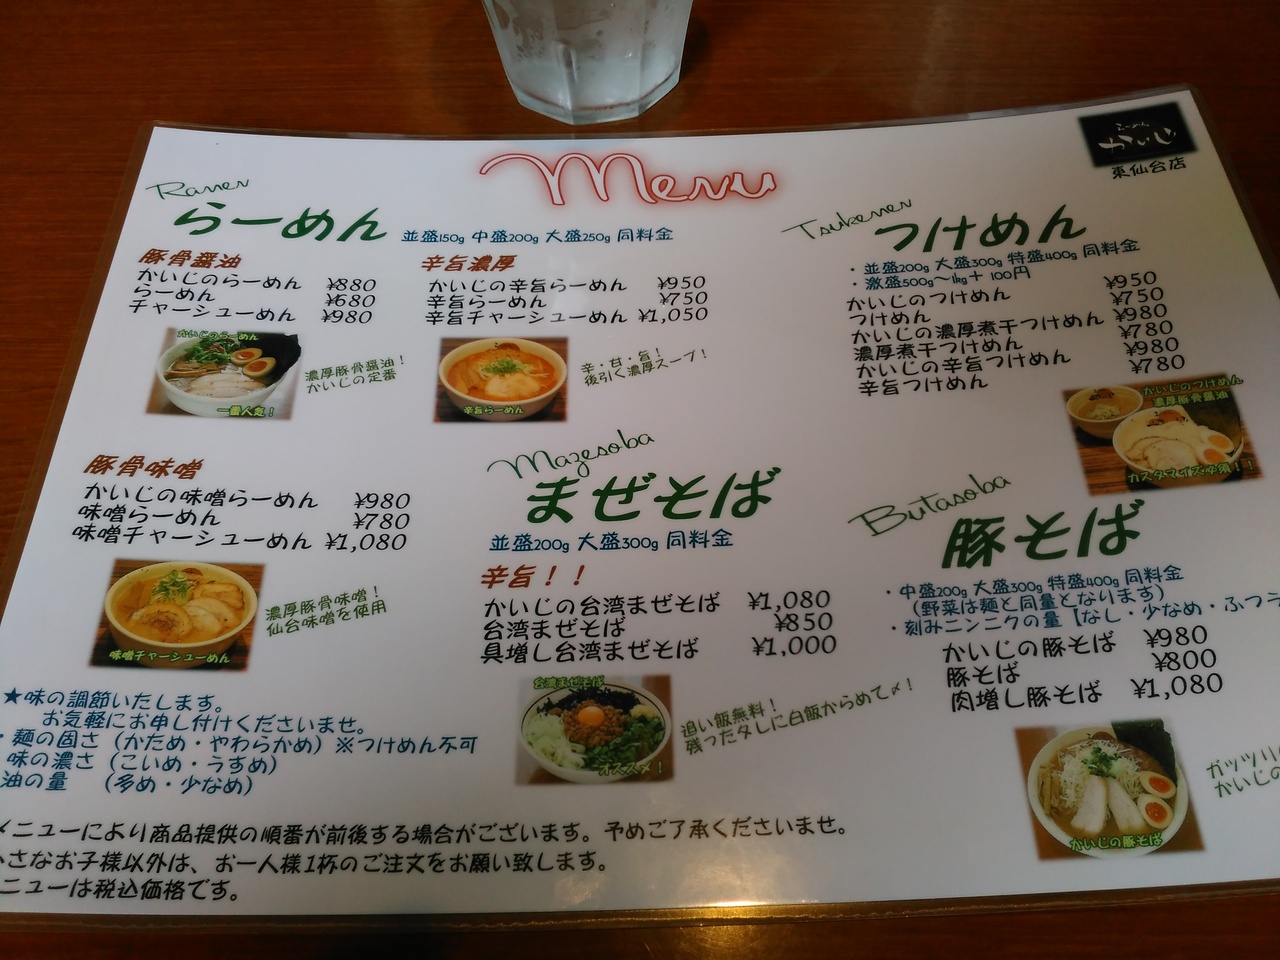 Menu
らーめん
かいじ
東仙台店
Ramen
らーめん
並盛150g 中盛200g 大盛250g 同料金
豚骨醤油
かいじのらーめん ¥880
らーめん ¥680
チャーシューめん ¥980
かいじのらーめん
一番人気!
濃厚豚骨醤油!
かいじの定番
辛旨濃厚
かいじの辛旨らーめん ¥950
辛旨らーめん ¥750
辛旨チャーシューめん ¥1,050
辛旨らーめん
辛・甘・旨!
後引く濃厚スープ!
豚骨味噌
かいじの味噌らーめん ¥980
味噌らーめん ¥780
味噌チャーシューめん ¥1,080
味噌チャーシューめん
濃厚豚骨味噌!
仙台味噌を使用
Tsukemen
つけめん
・並盛200g 大盛300g 特盛400g 同料金
・激盛500g~1kg+100円
かいじのつけめん ¥950
つけめん ¥750
かいじの濃厚煮干つけめん ¥980
濃厚煮干つけめん ¥780
かいじの辛旨つけめん ¥980
辛旨つけめん ¥780
かいじのつけめん
濃厚豚骨醤油
カスタマイズ必須!!
Mazesoba
まぜそば
並盛200g 大盛300g 同料金
辛旨!!
かいじの台湾まぜそば ¥1,080
台湾まぜそば ¥850
具増し台湾まぜそば ¥1,000
台湾まぜそば
オススメ!
追い飯無料!
残ったタレに白飯からめて〆!
Butasoba
豚そば
・中盛200g 大盛300g 特盛400g 同料金
(野菜は麺と同量となります)
・刻みニンニクの量【なし・少なめ・ふつう
かいじの豚そば ¥980
豚そば ¥800
肉増し豚そば ¥1,080
かいじの豚そば
ガッツリ
かいじの
★味の調節いたします。
お気軽にお申し付けくださいませ。
・麺の固さ(かため・やわらかめ)※つけめん不可
味の濃さ(こいめ・うすめ)
油の量 (多め・少なめ)
メニューにより商品提供の順番が前後する場合がございます。予めご了承くださいませ。
さなお子様以外は、お一人様1杯のご注文をお願い致します。
ニューは税込価格です。